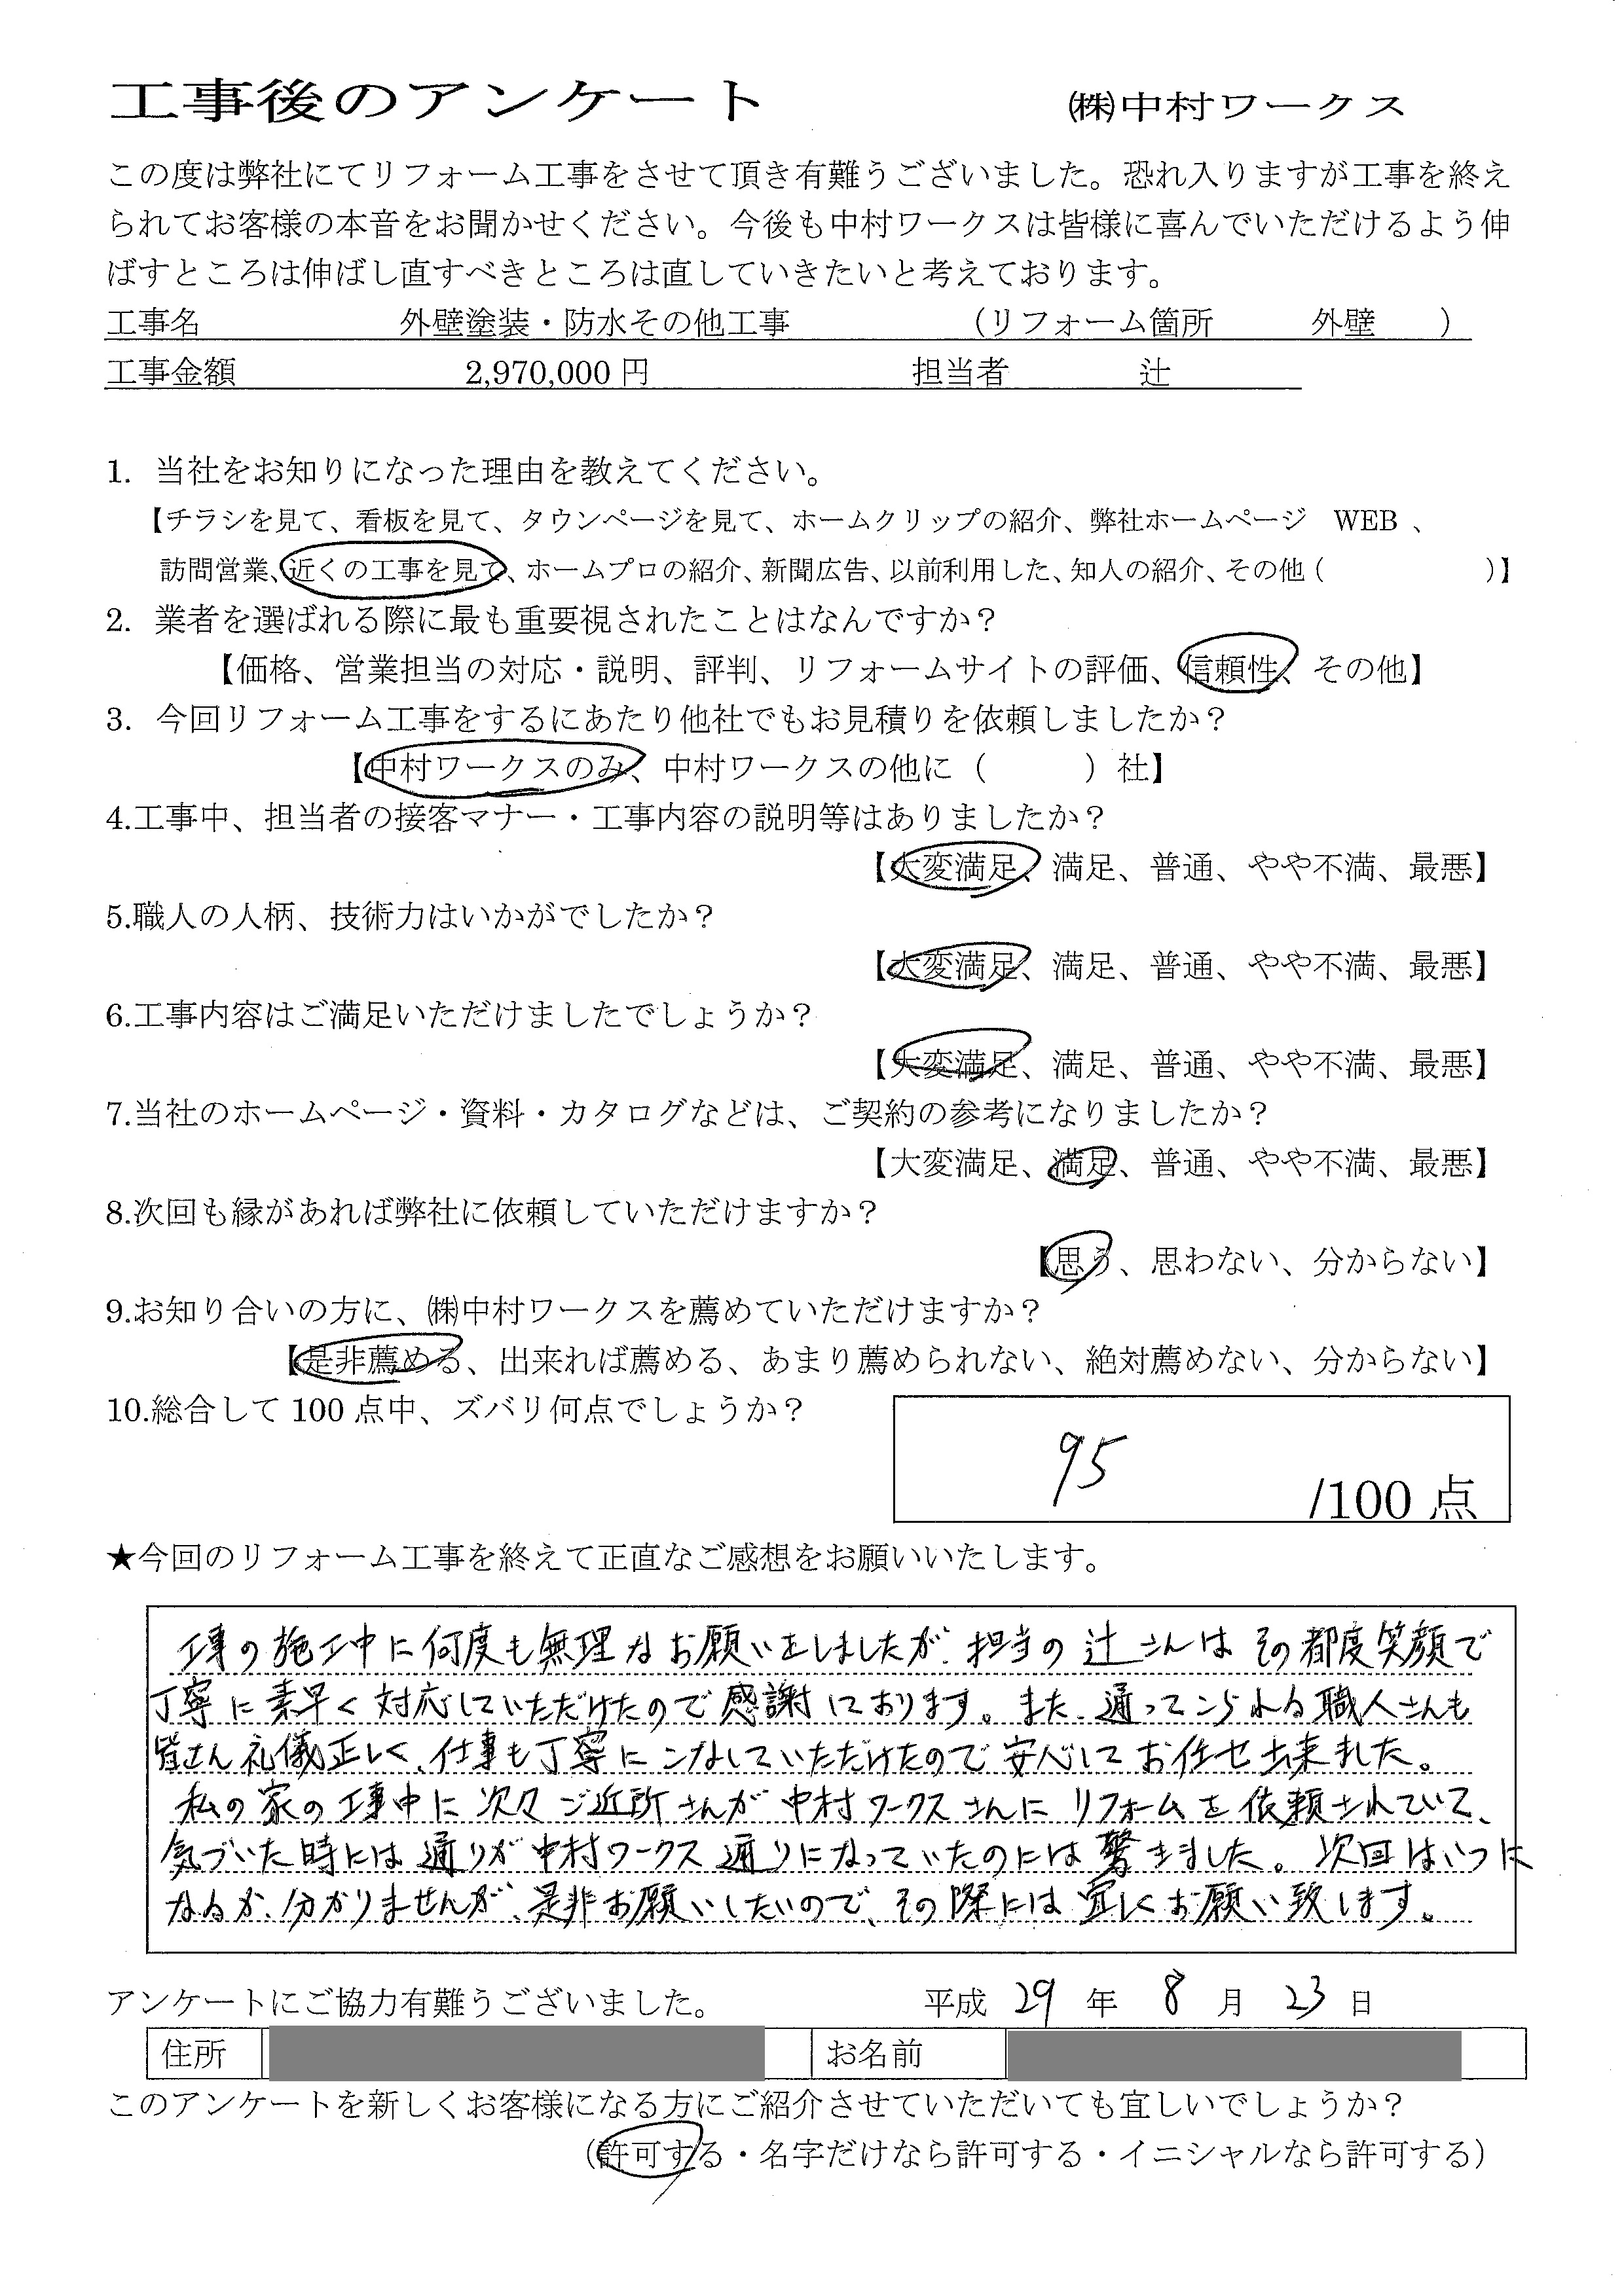 工事後のアンケート ㈱中村ワークス
この度は弊社にてリフォーム工事をさせて頂き有難うございました。恐れ入りますが工事を終え
られてお客様の本音をお聞かせください。今後も中村ワークスは皆様に喜んでいただけるよう伸
ばすところは伸ばし直すべきところは直していきたいと考えております。
工事名 外壁塗装・防水その他工事 （リフォーム箇所 外壁 ）
工事金額 2,970,000 円 担当者 辻
1. 当社をお知りになった理由を教えてください。
【チラシを見て、看板を見て、タウンページを見て、ホームクリップの紹介、弊社ホームページ WEB 、
訪問営業、近くの工事を見て、ホームプロの紹介、新聞広告、以前利用した、知人の紹介、その他（ ）】
2. 業者を選ばれる際に最も重要視されたことはなんですか？
【価格、営業担当の対応・説明、評判、リフォームサイトの評価、信頼性、その他】
3. 今回リフォーム工事をするにあたり他社でもお見積りを依頼しましたか？
【中村ワークスのみ、中村ワークスの他に（ ）社】
4.工事中、担当者の接客マナー・工事内容の説明等はありましたか？
【大変満足、満足、普通、やや不満、最悪】
5.職人の人柄、技術力はいかがでしたか？
【大変満足、満足、普通、やや不満、最悪】
6.工事内容はご満足いただけましたでしょうか？
【大変満足、満足、普通、やや不満、最悪】
7.当社のホームページ・資料・カタログなどは、ご契約の参考になりましたか？
【大変満足、満足、普通、やや不満、最悪】
8.次回も縁があれば弊社に依頼していただけますか？
【思う、思わない、分からない】
9.お知り合いの方に、㈱中村ワークスを薦めていただけますか？
【是非薦める、出来れば薦める、あまり薦められない、絶対薦めない、分からない】
10.総合して 100 点中、ズバリ何点でしょうか？
95 /100 点
★今回のリフォーム工事を終えて正直なご感想をお願いいたします。
工事の施工中に何度も無理なお願いをしましたが、担当の辻さんはその都度笑顔で
丁寧に素早く対応していただけたので感謝しております。また、通ってこられる職人さんも
皆さん礼儀正しく、仕事も丁寧にこなしていただけたので安心してお任せ出来ました。
私の家の工事中に次々ご近所さんが中村ワークスさんにリフォームを依頼されていて、
気づいた時には通りが中村ワークス通りになっていたのには驚きました。次回はいつに
なるか、分かりませんが、是非お願いしたいので、その際には宜しくお願い致します。
アンケートにご協力有難うございました。 平成 29 年 8 月 23 日
住所 お名前
このアンケートを新しくお客様になる方にご紹介させていただいても宜しいでしょうか？
（許可する・名字だけなら許可する・イニシャルなら許可する）